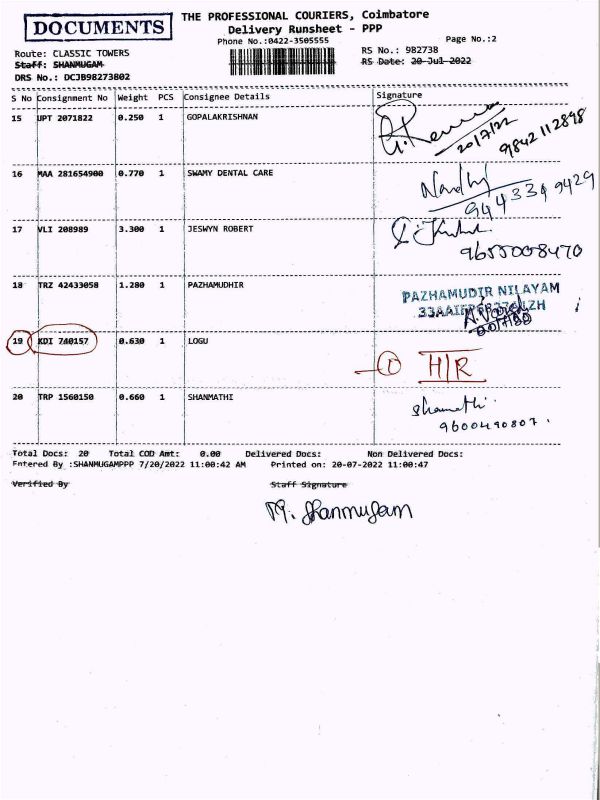 DOCUMENTS
THE PROFESSIONAL COURIERS, Coimbatore
Delivery Runsheet - PPP
Phone No.:0422-3505555
Page No.:2
Route: CLASSIC TOWERS
RS No.: 982738
Staff: SHANMUGAM
RS Date: 20-Jul-2022
DRS No.: DCJB98273802
S No Consignment No Weight PCS Consignee Details Signature
15 UPT 2071822 0.250 1 GOPALAKRISHNAN
20/7/22
9842112898
16 MAA 281654900 0.770 1 SWAMY DENTAL CARE
9443349429
17 VLI 208989 3.300 1 JESWYN ROBERT
9655008470
18 TRZ 42433058 1.280 1 PAZHAMUDHIR
PAZHAMUDIR NILAYAM
19 KDI 740157 0.630 1 LOGU
1 H/R
20 TRP 1560150 0.660 1 SHANMATHI
9600490807.
Total Docs: 20 Total COD Amt: 0.00 Delivered Docs: Non Delivered Docs:
Entered By :SHANMUGAMPPP 7/20/2022 11:00:42 AM Printed on: 20-07-2022 11:00:47
Verified By Staff Signature
M. Shanmugam